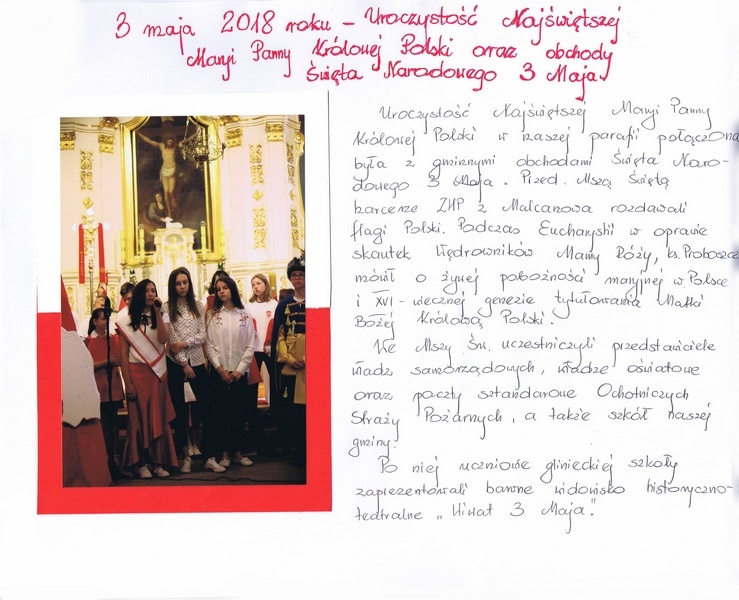 3 maja 2018 roku – Uroczystość Najświętszej
Maryi Panny Królowej Polski oraz obchody
Święta Narodowego 3 Maja
Uroczystość Najświętszej Maryi Panny
Królowej Polski w naszej parafii połączona
była z gminnymi obchodami Święta Naro-
dowego 3 Maja. Przed Mszą Świętą
harcerze ZHP z Malcanowa rozdawali
flagi Polski. Podczas Eucharystii w oprawie
skautek Wędrowników Mamy Róży, ks. Proboszcz
mówił o żywej pobożności maryjnej w Polsce
i XVI-wiecznej genezie tytułowania Matki
Bożej Królową Polski.
We Mszy Św. uczestniczyli przedstawiciele
władz samorządowych, władze oświatowe
oraz poczty sztandarowe Ochotniczych
Straży Pożarnych, a także szkół naszej
gminy.
Po niej uczniowie glinieckiej szkoły
zaprezentowali barwne widowisko historyczno-
teatralne „Wiwat 3 Maja".